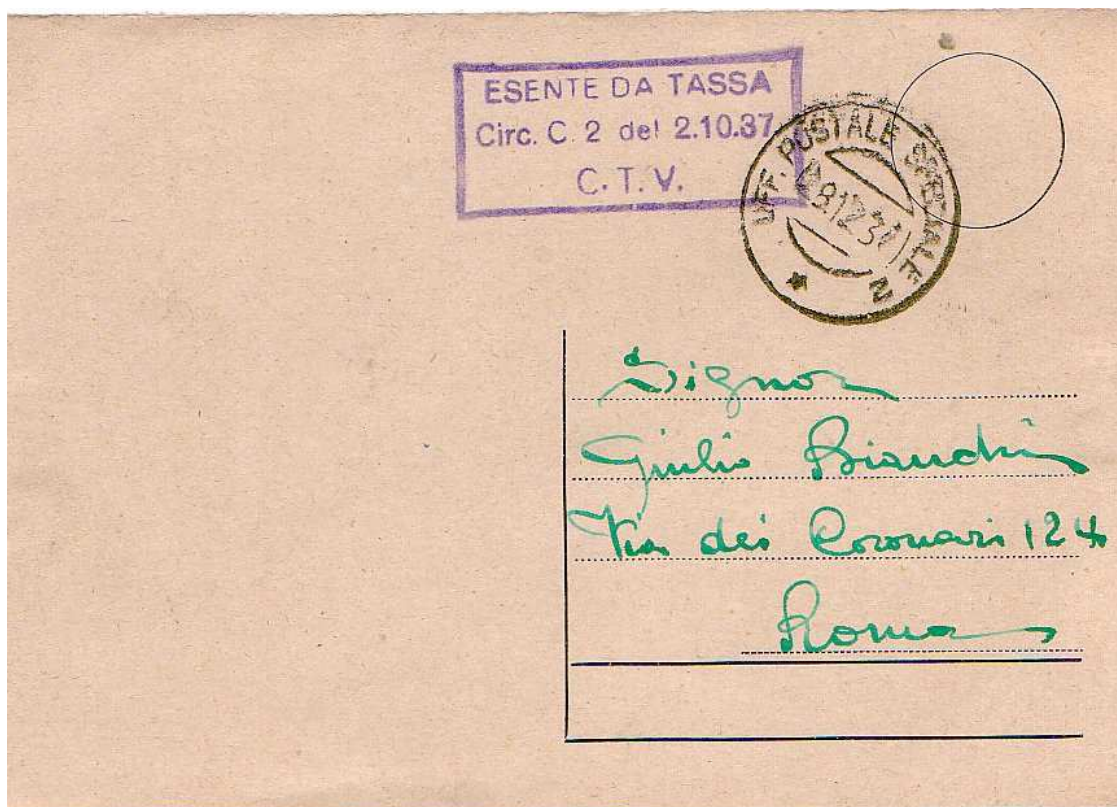 ESENTE DA TASSA
Circ. C. 2 del 2.10.37
C. T. V.
UFF. POSTALE SPECIALE 2
8.12.37
Signor
Giulio Bianchi
Via dei Coronari 124
Roma